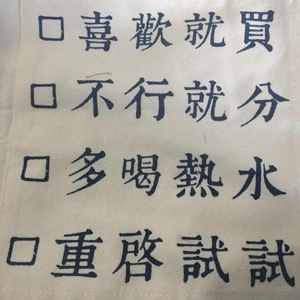 □喜歡就買
□不行就分
□多喝熱水
□重啓試試